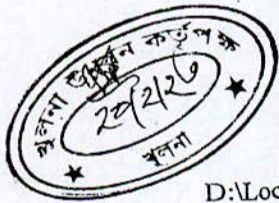 খুলনা উন্নয়ন কর্তৃপক্ষ
খুলনা
D:\Loc